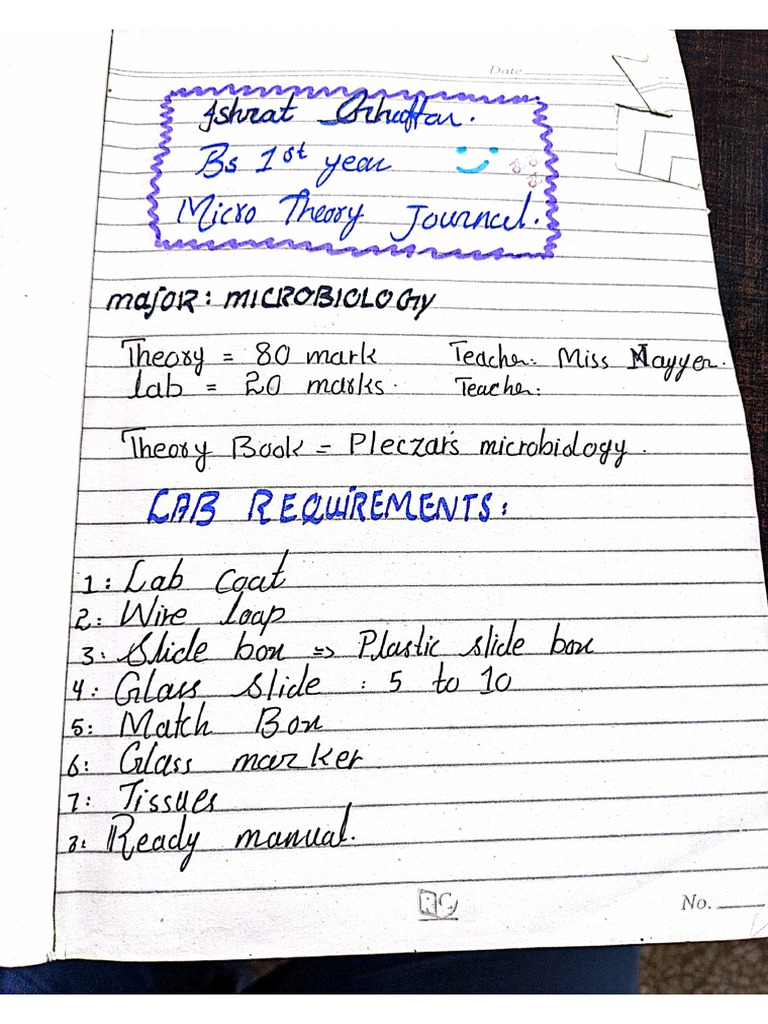 Date
Ishrat Ghaffar.
Bs 1st year
Micro Theory Journal.
major: MICROBIOLOGY
Theory = 80 mark Teacher: Miss Nayyer.
lab = 20 marks. Teacher:
Theory Book = Pleczar's microbiology.
LAB REQUIREMENTS:
1: Lab coat
2: Wire loop
3: Slide box => Plastic slide box
4: Glass slide : 5 to 10
5: Match Box
6: Glass marker
7: Tissues
8: Ready manual.
RG
No.